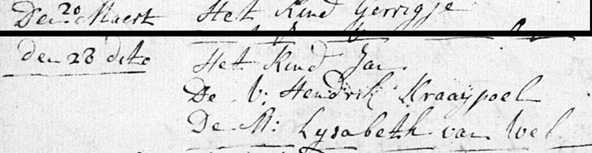 Den 20 Maert Het Kind Gerrigje
den 28 dito Het Kind Jan
De V: Hendrik Kraaijpoel
De M: Lysabeth van Wel